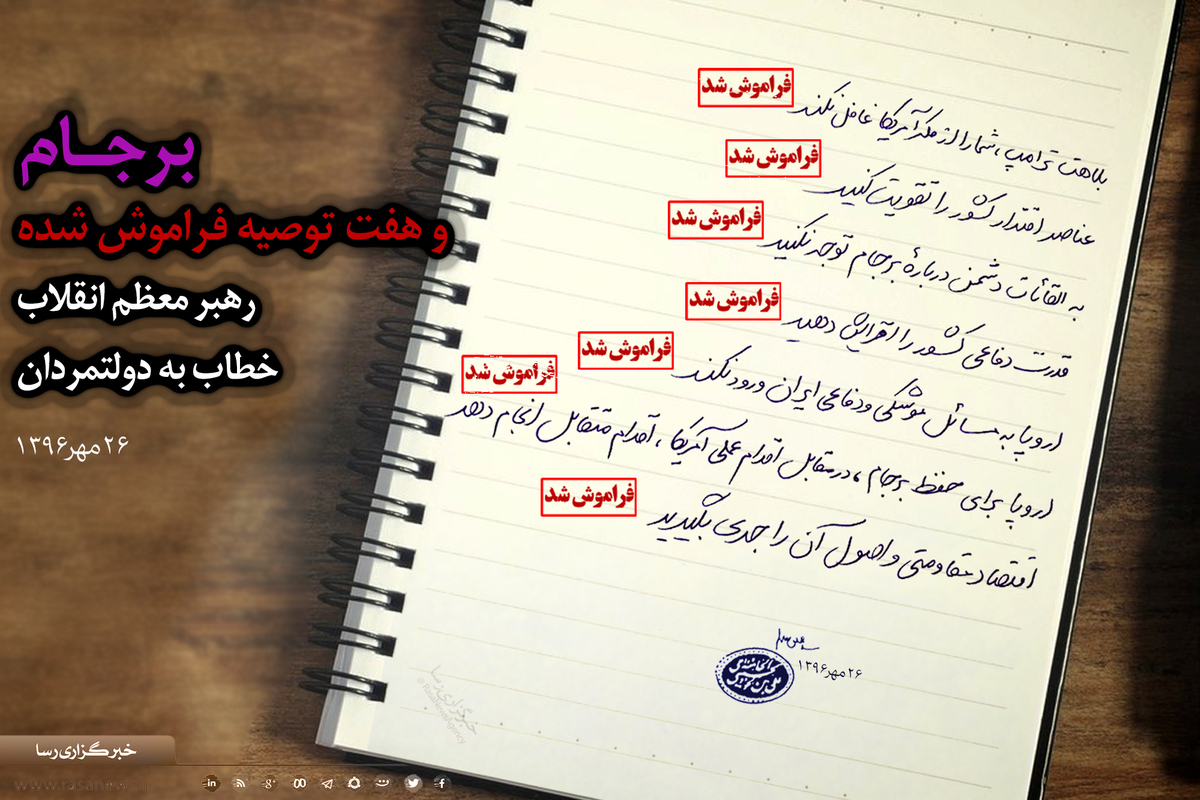 برجام
و هفت توصیه فراموش شده
رهبر معظم انقلاب
خطاب به دولتمردان
۲۶ مهر ۱۳۹۶
بلاهت ترامپ، شما را از مکر آمریکا غافل نکند فراموش شد
عناصر اقتدار کشور را تقویت کنید فراموش شد
به القائات دشمن دربارهٔ برجام توجه نکنید فراموش شد
قدرت دفاعی کشور را افزایش دهید فراموش شد
اروپا به مسائل موشکی و دفاعی ایران ورود نکند فراموش شد
اروپا برای حفظ برجام، در مقابل اقدام عملی آمریکا، اقدام متقابل انجام دهد فراموش شد
اقتصاد مقاومتی و اصول آن را جدی بگیرید فراموش شد
۲۶ مهر ۱۳۹۶
خبرگزاری رسا
© RasaNewsAgency
خبرگزاری رسا